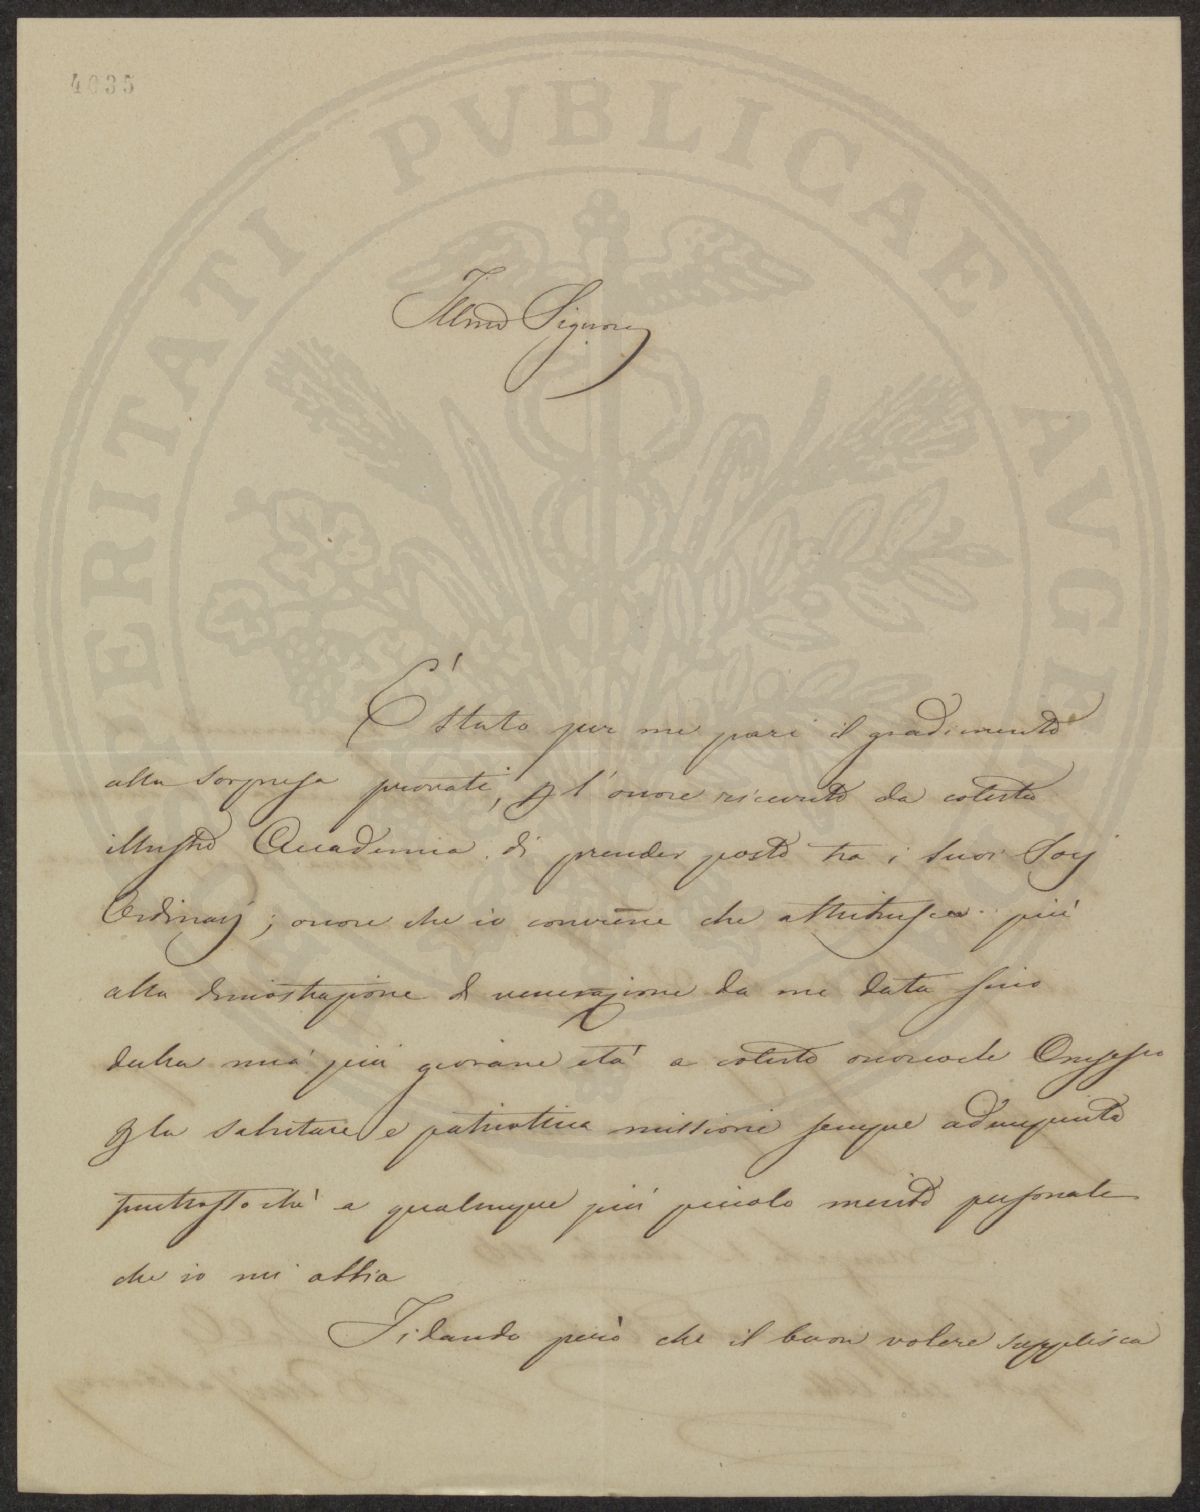 4035
PROSPERITATI PVBLICAE AVGENDAE
Illmo Signore
E' stato per me pari il gradimento
alla sorpresa provati, p l'onore ricevuto da cotesta
illustre Accademia di prender posto tra i suoi Socj
Ordinarj; onore che io conviene che attribuisca più
alla dimostrazione di venerazione da me data sino
dalla mia più giovane età a cotesto onorevole
p la salutare e patriottica missione sempre adempiuta
piuttosto chè a qualunque più piccolo merito personale
che io mi abbia
Fidando però che il buon volere supplisca